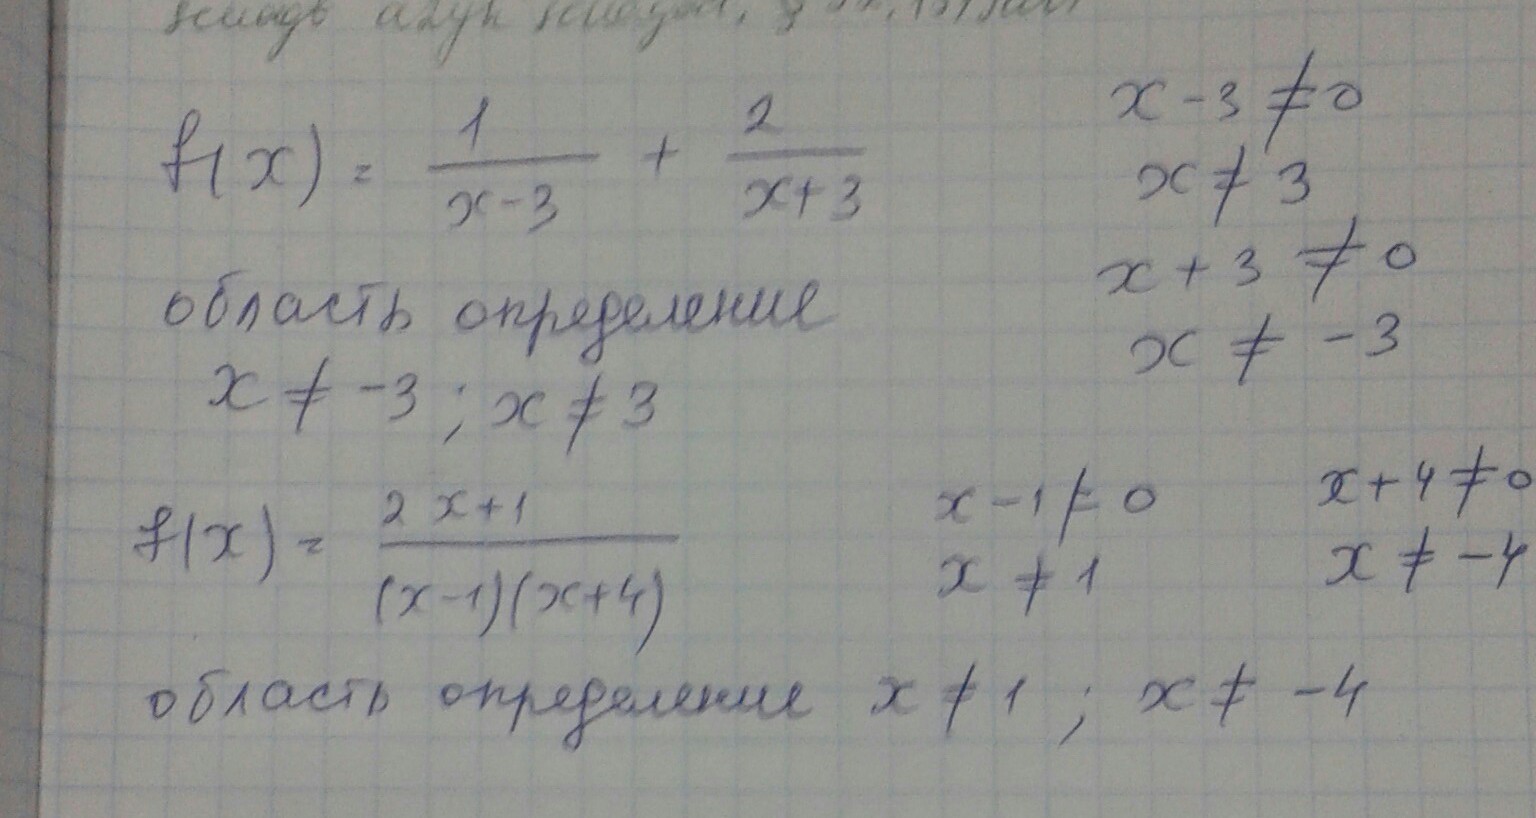 f(x) = 1/(x-3) + 2/(x+3)
x-3 ≠ 0
x ≠ 3
x+3 ≠ 0
x ≠ -3
область определение
x ≠ -3 ; x ≠ 3
f(x) = (2x+1)/((x-1)(x+4))
x-1 ≠ 0
x ≠ 1
x+4 ≠ 0
x ≠ -4
область определение x ≠ 1 ; x ≠ -4